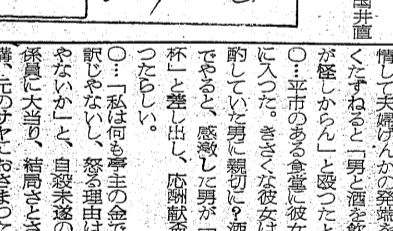 国井直
情して夫婦げんかの発端を
くたずねると「男と酒を飲
が怪しからん」と殴つたと
〇…平市のある食堂に彼女
に入つた。きさくな彼女は
酌していた男に親切に?酒
でやると、感激した男が「
杯」と差し出し、応酬献盃
つたらしい。
〇…「私は何も亭主の金で
訳じやないし、怒る理由は
やないか」と、自殺未遂の
係員に大当り、結局さとさ
構、元のサヤにおさまつて